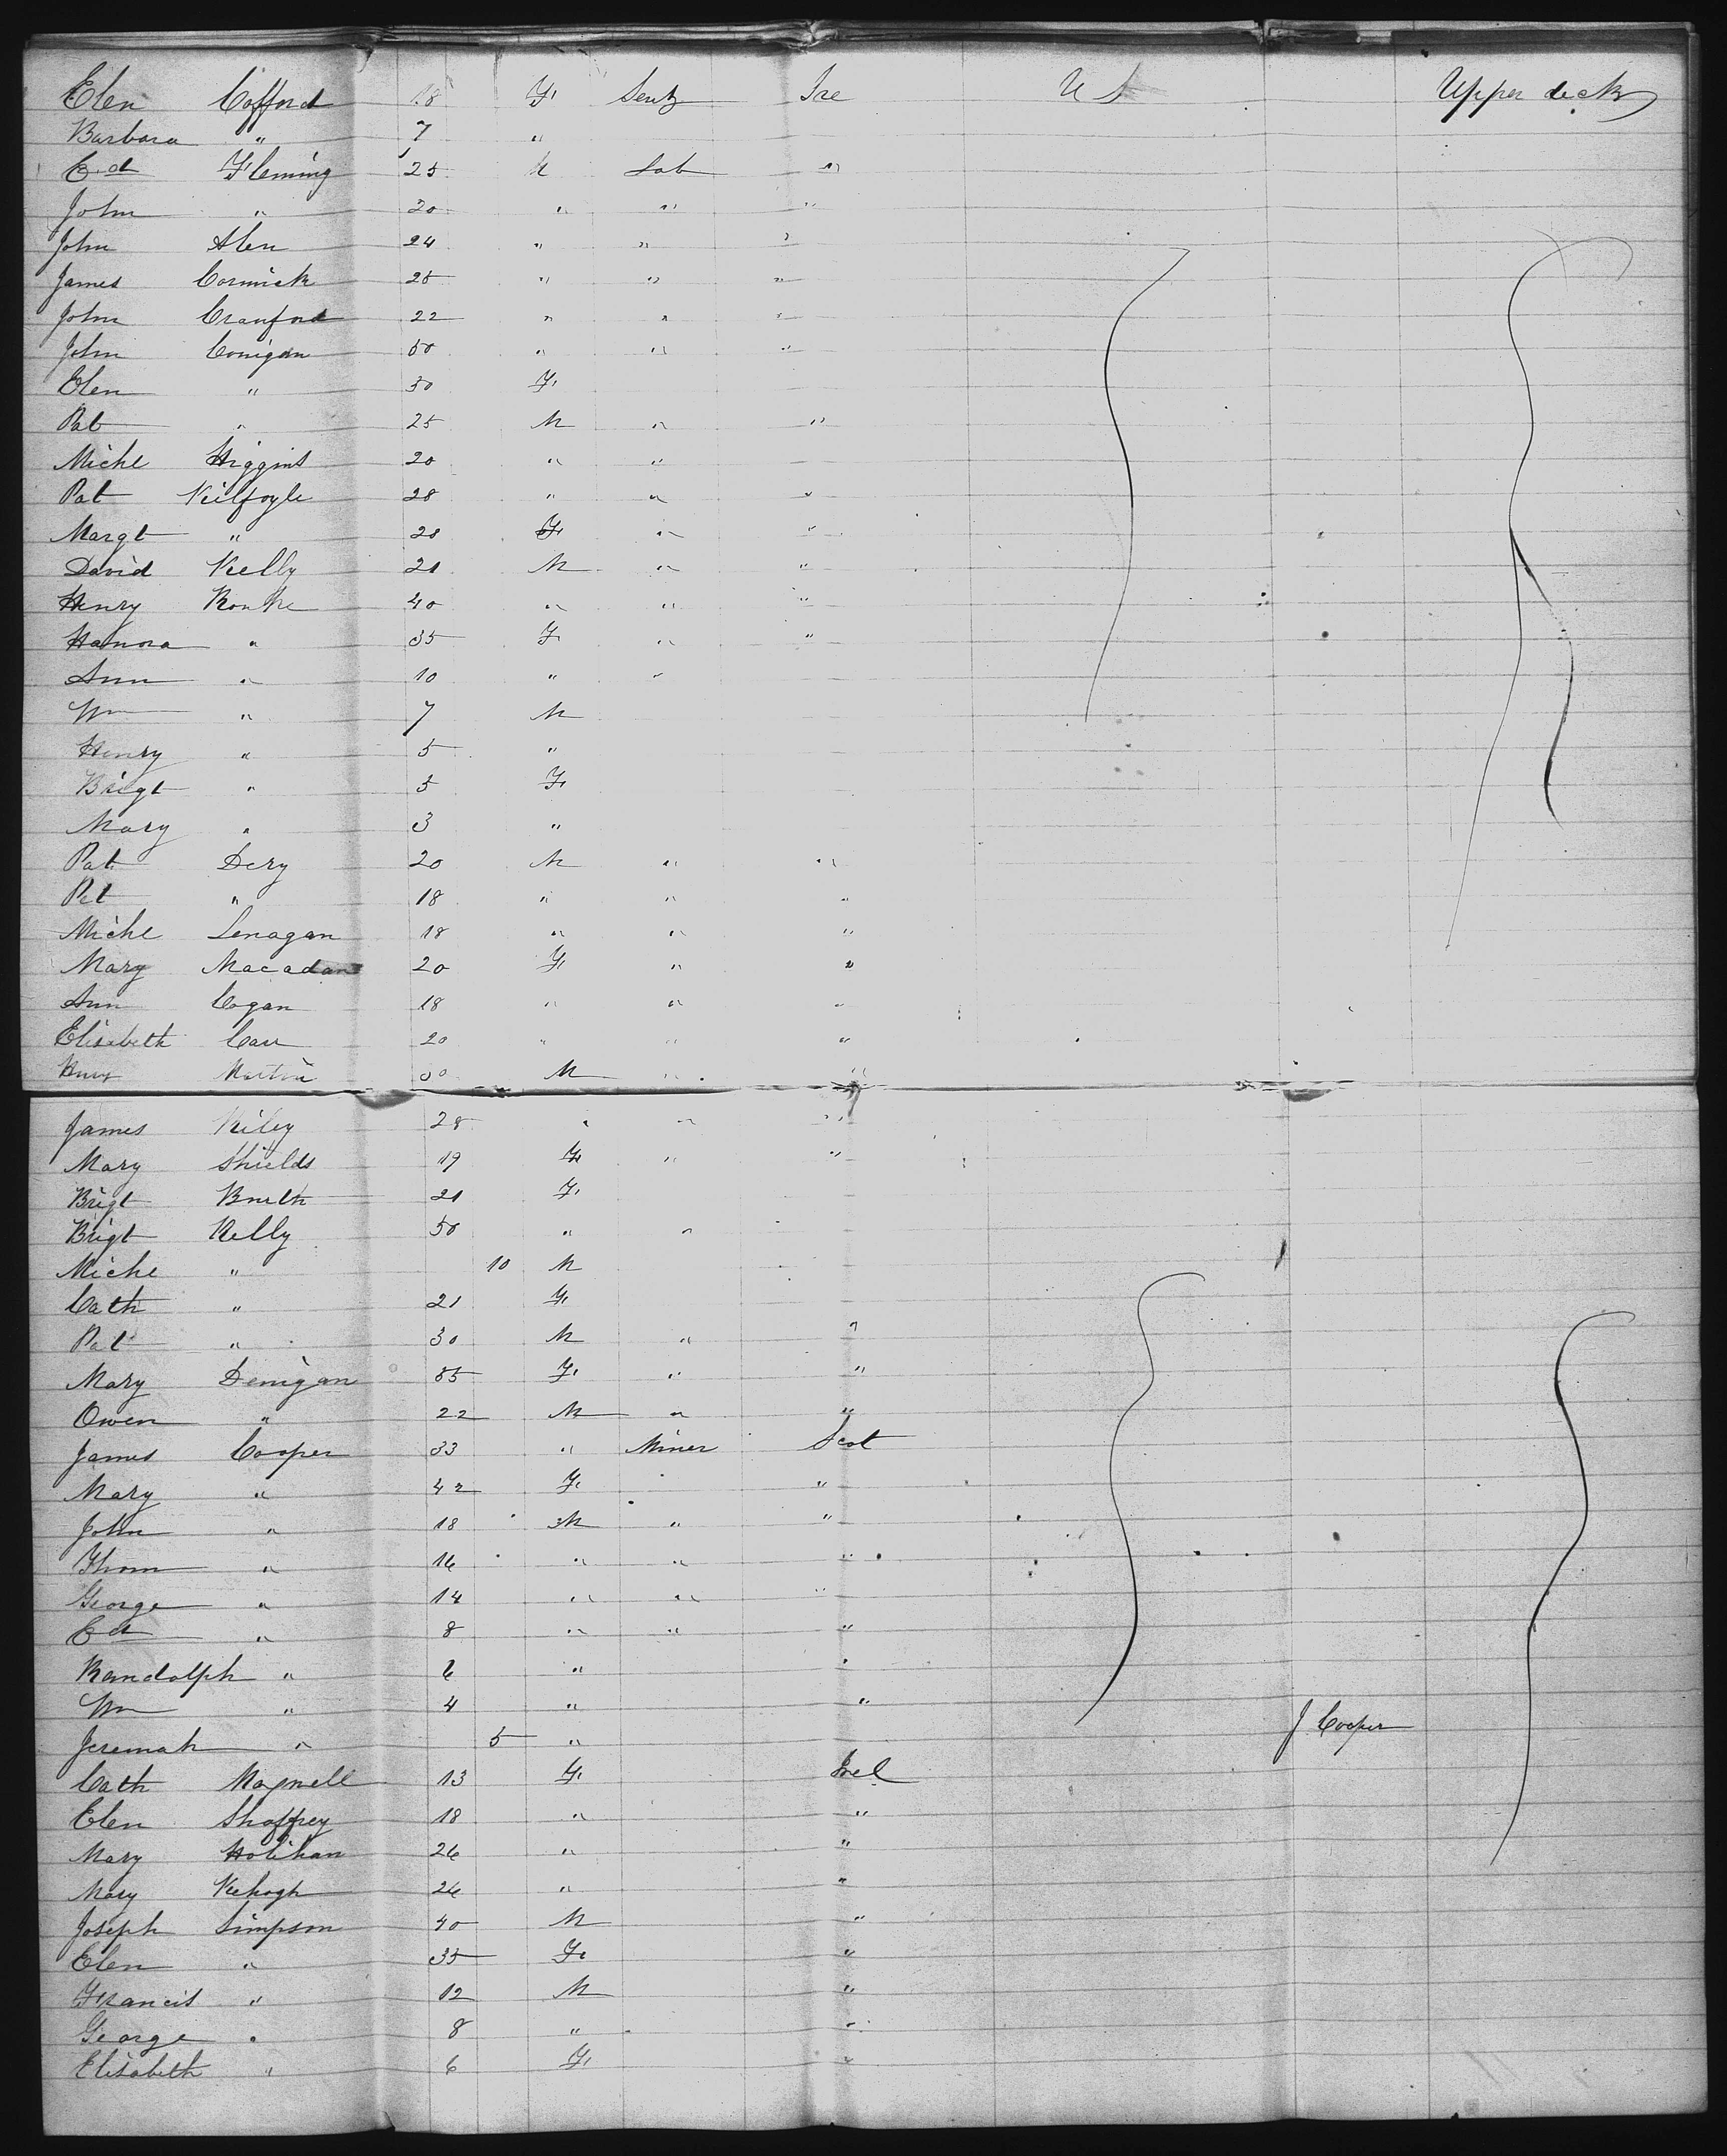 Elen Cofford 18 F. Ire U S Upper deck
Barbara " 7 "
Ed Fleming 25 M Lab "
John " 20 " " "
John Alen 24 " " "
James Cormick 25 " " "
John Cranford 22 " " "
John Conigan 50 " " "
Elen " 30 F.
Pat " 25 M " "
Michl Higgins 20 " "
Pat Kilfoyle 28 " " "
Margt " 20 F. " "
David Kelly 21 M " "
Henry 40 " " "
Hanora " 35 F. " "
Ann " 10 " "
Wm " 7 M
Henry " 5 "
Brigt " 5 F.
Mary " 3 "
Pat Dery 20 M " "
Pat " 18 " " "
Michl Lenagan 18 " " "
Mary Macadam 20 F. " "
Ann Cogan 18 " " "
Elisabeth Carr 20 " " "
Martin 30 M " "
James Riley 28 " " "
Mary Shields 19 F. " "
Brigt 21 F.
Brigt Kelly 50 " "
Michl " 10 M
Cath " 21 F.
Pat " 30 M " "
Mary Denigan 85 F. " "
Owen " 22 M " "
James Cooper 33 " Miner Scot
Mary " 42 F. "
John " 18 M " "
Thom " 16 " " "
George " 14 " " "
Ed " 8 " " "
Randolph " 6 " "
Wm " 4 " "
Jeremah " 5 " J Cooper
Cath Magnell 13 F. Irel
Elen Shaffrey 18 " "
Mary Holihan 26 " "
Mary Kehogh 26 " "
Joseph Simpson 40 M "
Elen " 35 F. "
Francis " 12 M "
George " 8 " "
Elisabeth " 6 F. "